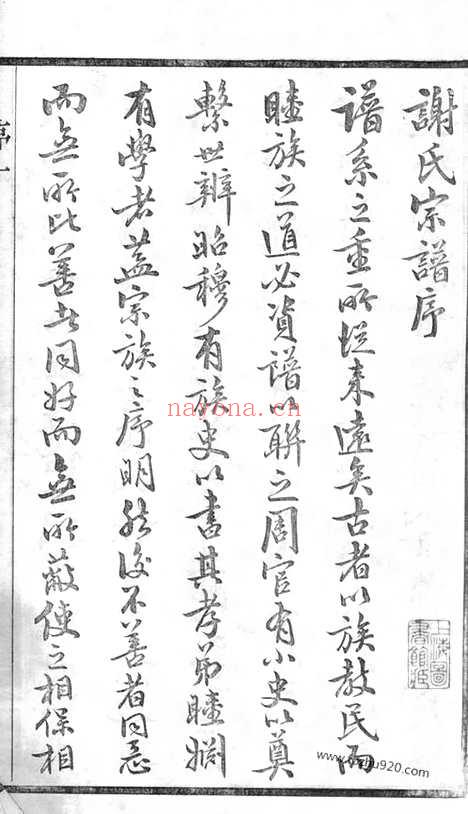 謝氏宗譜序
譜系之重所從來遠矣古者以族教民而
睦族之道必資譜以聯之周官有小史以奠
繫世辨昭穆有族史以書其孝弟睦婣
有學者蓋宗族之序明然後不善者同惡
而無所比善者同好而無所蔽使之相保相
序一
上海圖
書館藏
nayona.cn
www.kfzhu920.com